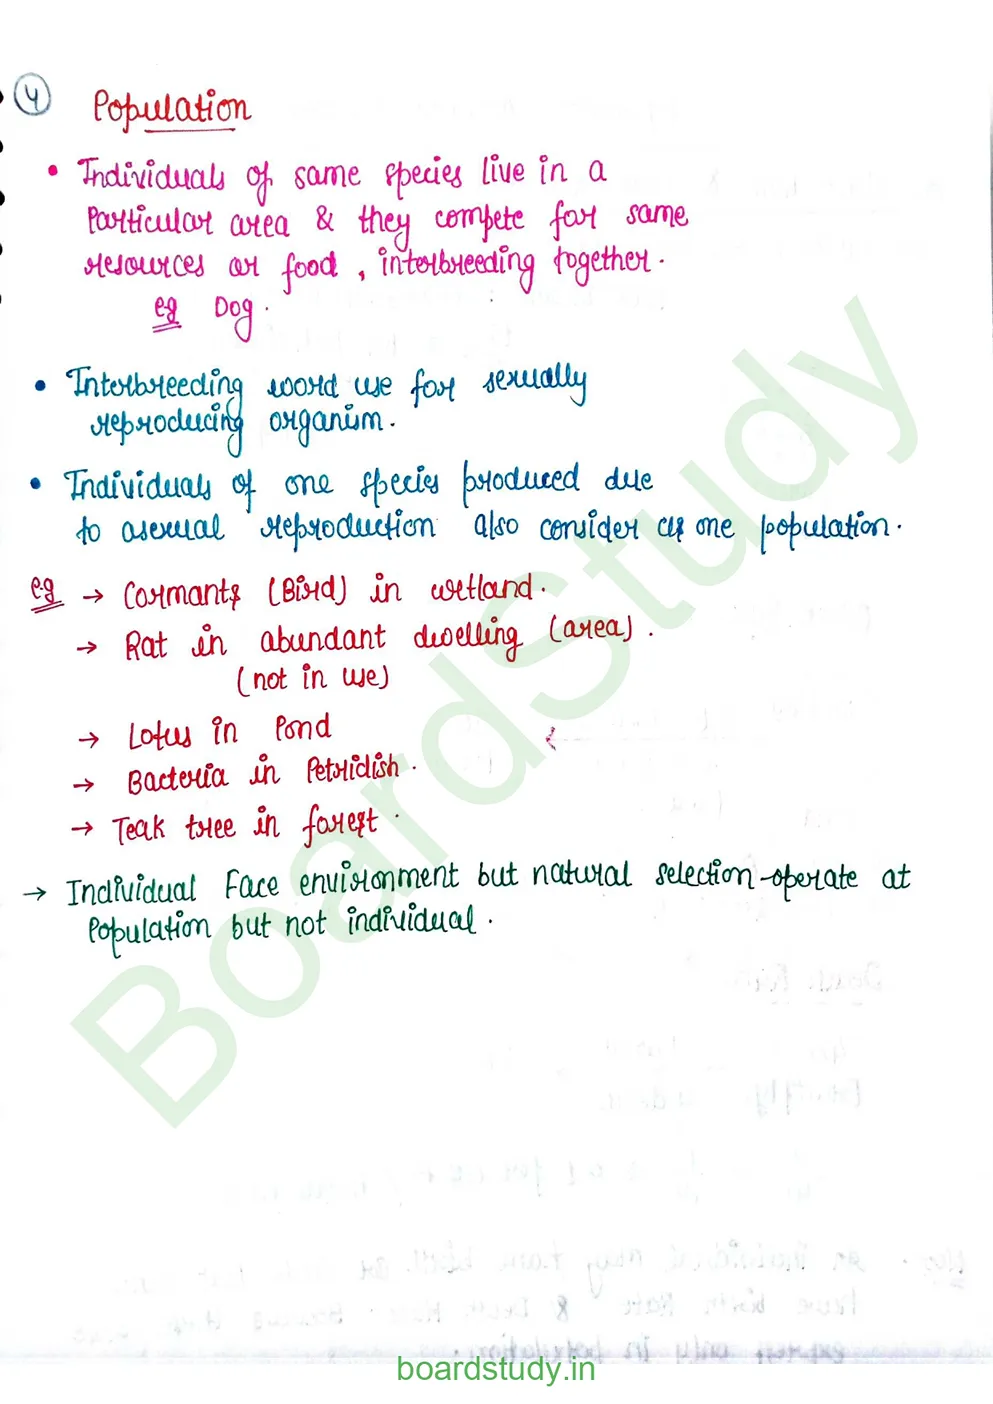 4 Population
• Individuals of same species live in a
Particular area & they compete for same
resources or food, interbreeding together.
eg Dog.
• Interbreeding word use for sexually
reproducing organism.
• Individuals of one species produced due
to asexual reproduction also consider as one population.
eg → Cormants (Bird) in wetland.
→ Rat in abundant dwelling (area).
(not in use)
→ Lotus in Pond
→ Bacteria in Petridish.
→ Teak tree in forest.
→ Individual Face environment but natural selection operate at
Population but not individual.
BoardStudy
boardstudy.in